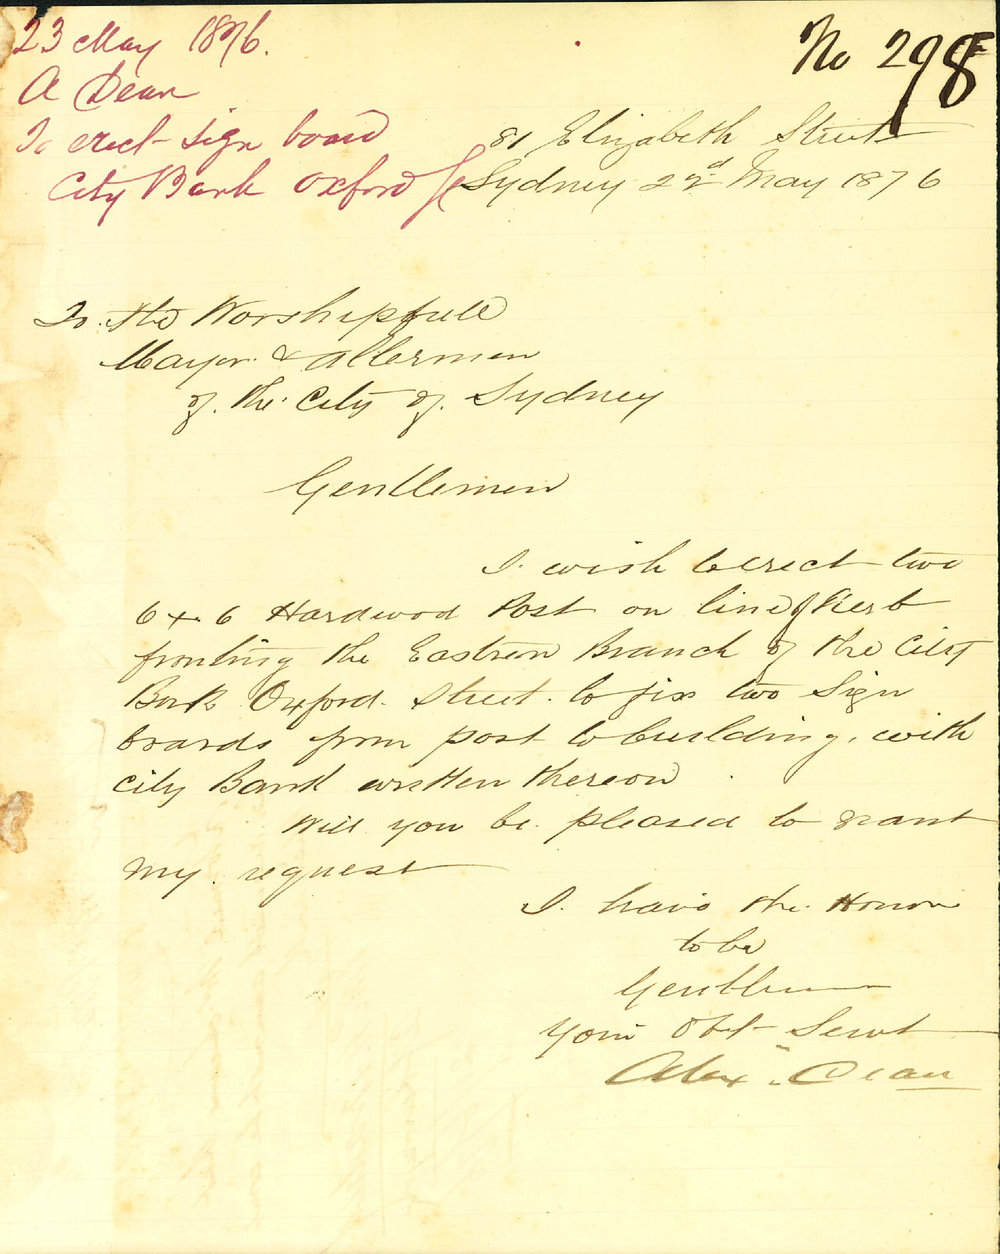 23 May 1876.
A Dean
To erect sign board
City Bank Oxford St
No 298
81 Elizabeth Street
Sydney 22nd May 1876
To. The Worshipfull
Mayor & Allermen
of. the City of. Sydney
Gentlemen
I wish to erect two
6 x 6 Hardwood Post on line of Kerb
fronting the Eastren Branch of the City
Bank Oxford Street. to fix two Sign
boards from post to building. with
City Bank written thereon
Will you be pleased to grant
my request
I have the Honor
to be
Gentlemen
Your Obt Servt
Alex. Dean